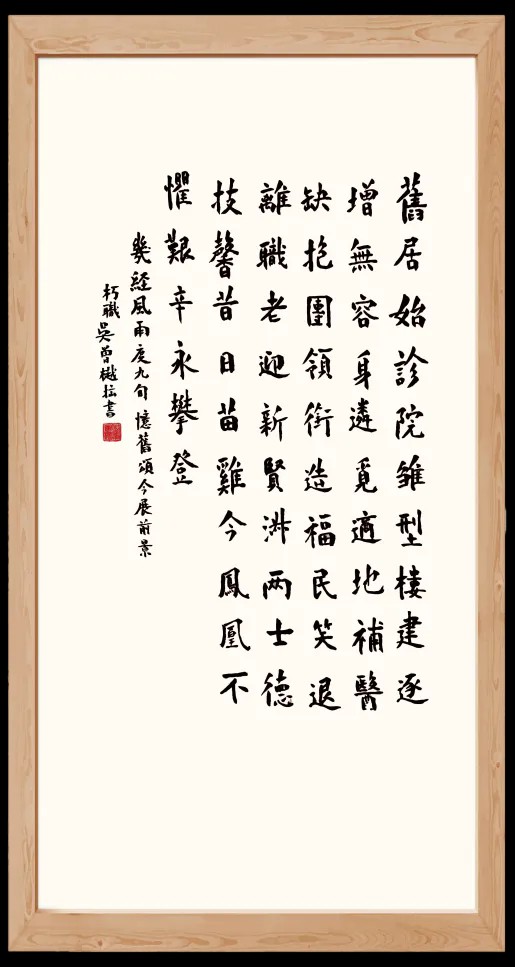 舊居始診院雏型樓建逐
增無容身遴覓適地補醫
缺抱團領銜造福民笑退
離職老迎新賢淋两士德
技馨昔日苗雞今鳳凰不
懼艱辛永攀登
幾經風雨度九旬憶舊頌今展前景
朽職吳曾樾抎書